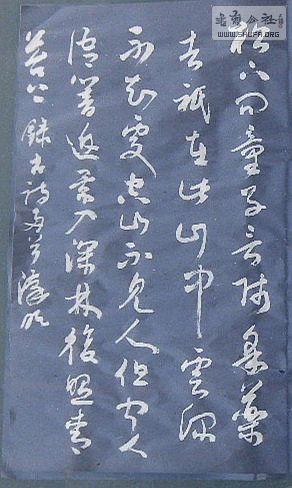 松下問童子言師采藥
去祇在此山中雲深
不知處空山不見人但聞人
語響返景入深林復照青
苔上 錄古詩兩首
WWW.SHUFA.ORG